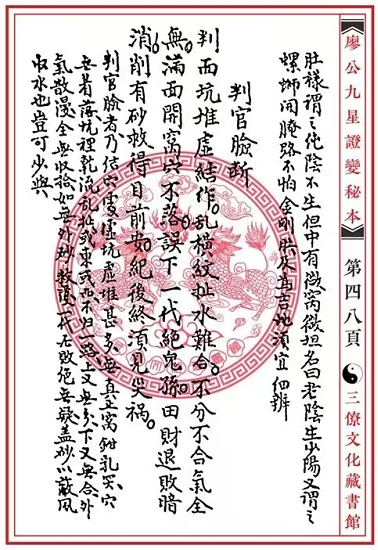 廖公九星證變秘本
第四八頁
三僚文化藏書館
肚樣謂之純陰不生但中有微窩微坦名曰老陰生少陽又謂之
螺螄開腌路不怕金剛肚水為吉地須宜細辨
判官臉斷
判面坑堆虛結作亂橫紋扯水難合不分不合氣全
無滿面開窩穴不落誤下一代絕兒孫田財退敗暗
消削有砂救得目前安絕後終須見災禍
判官臉者乃結穴處坑虛堆甚多無真正窩鉗乳突穴
安着落坑裡乱流乱扯或東或西不歸一路上又無分下又無合外
氣散漫全無收拾如無外砂救護一代即敗絕無疑盖砂以蔽風
收水也豈可少與